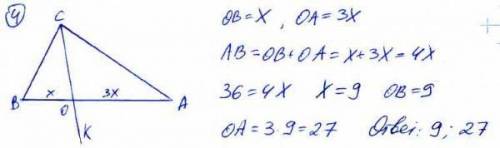 4
C
B x O 3x A
K
OB=x, OA=3x
AB=OB+OA=x+3x=4x
36=4x x=9 OB=9
OA=3·9=27 Ответ: 9; 27